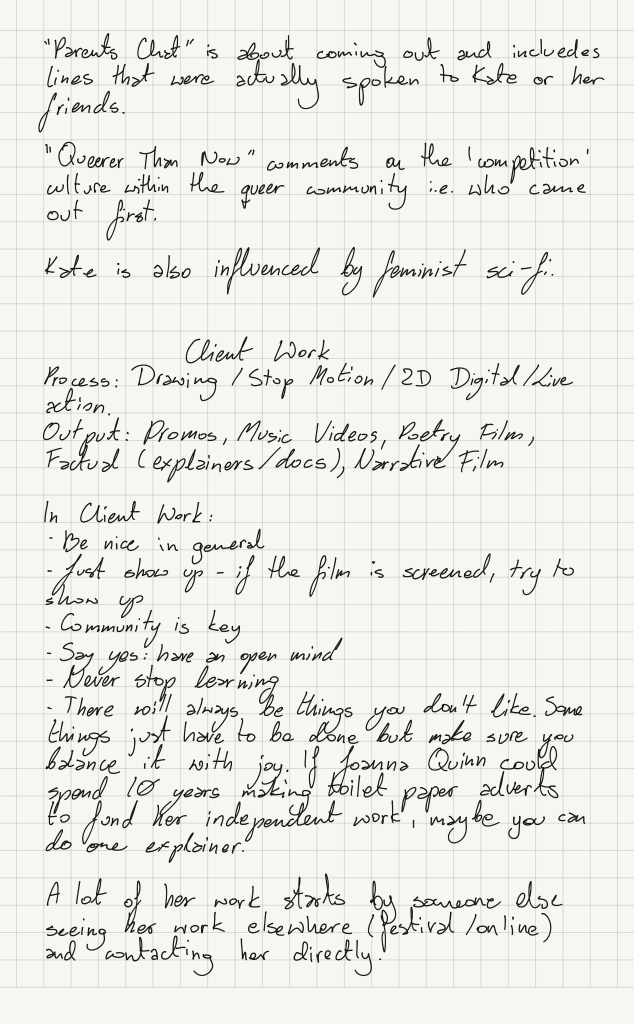 "Parents Chat" is about coming out and includes
lines that were actually spoken to Kate or her
friends.
"Queerer Than Now" comments on the 'competition'
culture within the queer community i.e. who came
out first.
Kate is also influenced by feminist sci-fi.
Client Work
Process: Drawing / Stop Motion / 2D Digital / Live
action.
Output: Promos, Music Videos, Poetry Film,
Factual (explainers/docs), Narrative Film
In Client Work:
- Be nice in general
- Just show up - if the film is screened, try to
show up
- Community is key
- Say yes: have an open mind
- Never stop learning
- There will always be things you don't like. Some
things just have to be done but make sure you
balance it with joy. If Joanna Quinn could
spend 10 years making toilet paper adverts
to fund her independent work, maybe you can
do one explainer.
A lot of her work starts by someone else
seeing her work elsewhere (festival/online)
and contacting her directly.